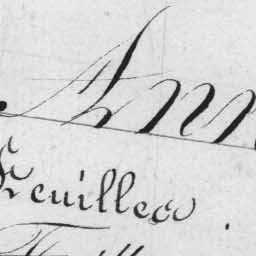 Ann
Feuilles.